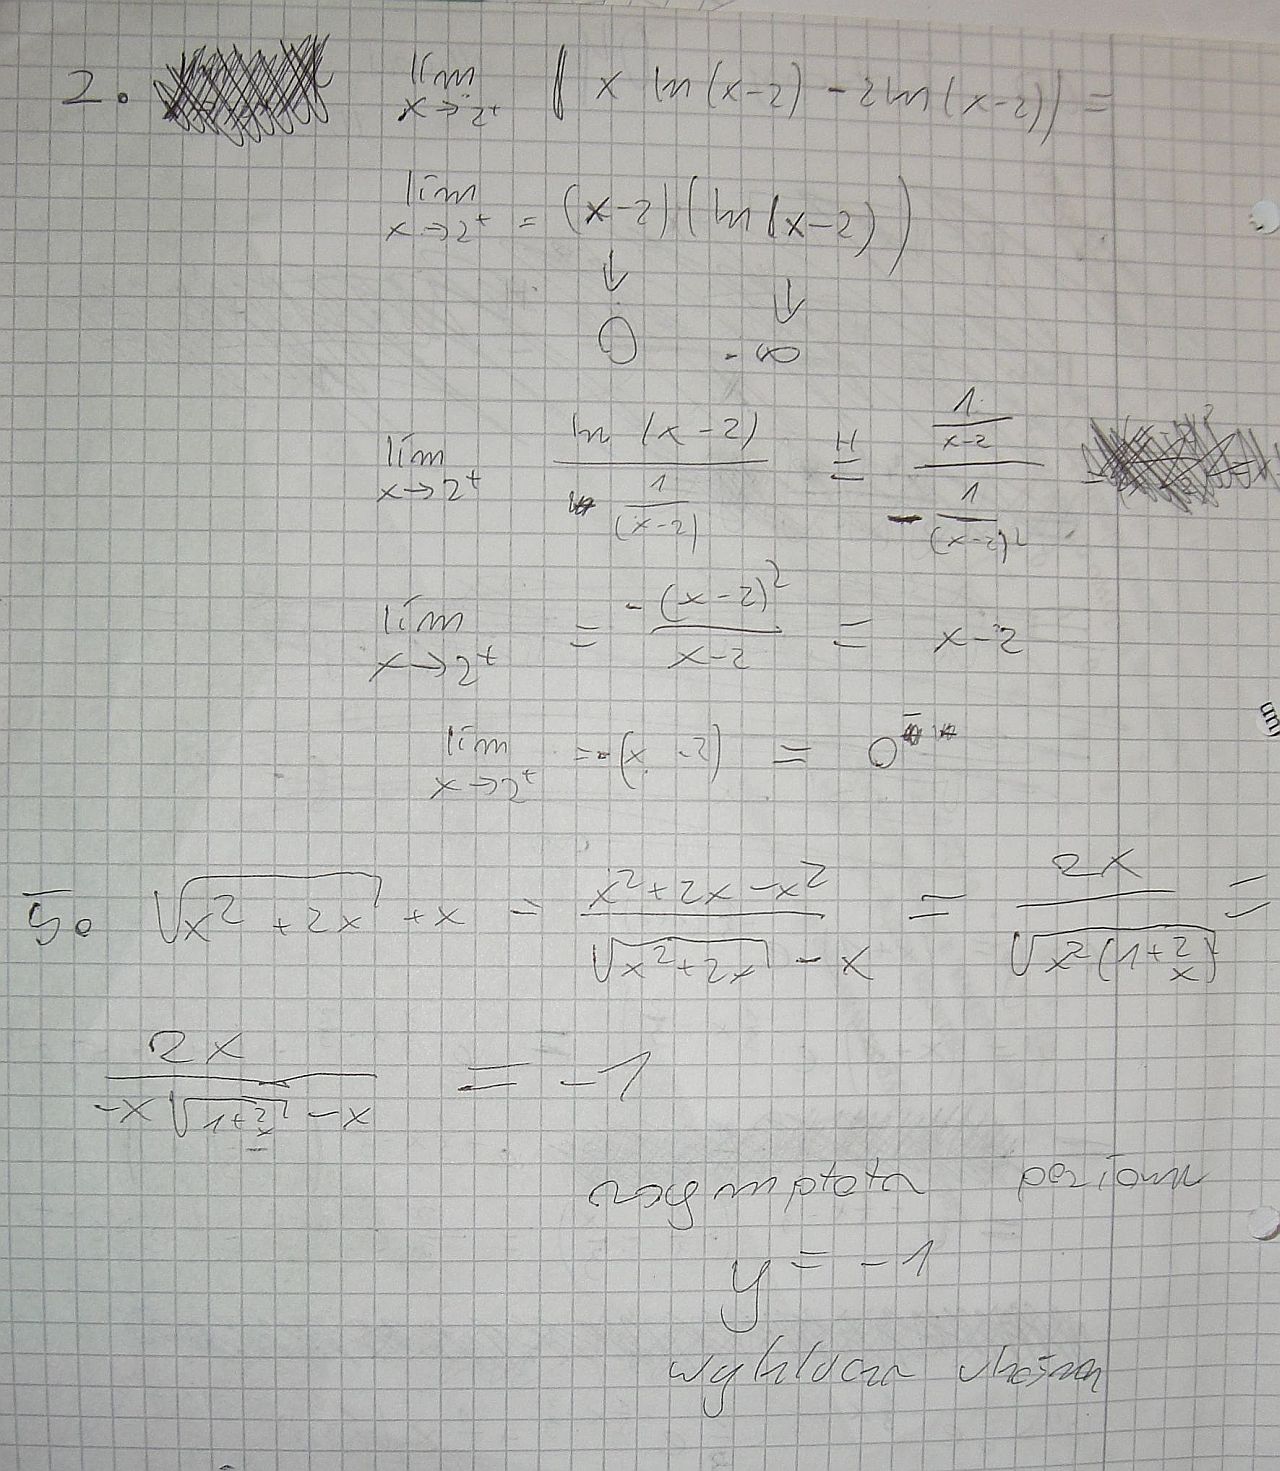 2. lim x→2⁺ ( x ln(x-2) - 2ln(x-2)) =
lim x→2⁺ = (x-2)(ln(x-2))
↓ ↓
0 -∞
lim x→2⁺ ln(x-2) / (1/(x-2)) =ᴴ (1/(x-2)) / (-1/(x-2)²)
lim x→2⁺ = -(x-2)²/(x-2) = x-2
lim x→2⁺ = -(x-2) = 0⁻
5. √(x²+2x) + x = (x²+2x-x²)/(√(x²+2x) - x) = 2x/√(x²(1+2/x)) =
2x/(-x√(1+2/x) - x) = -1
asymptota pozioma
y = -1
wyklucza ukośną